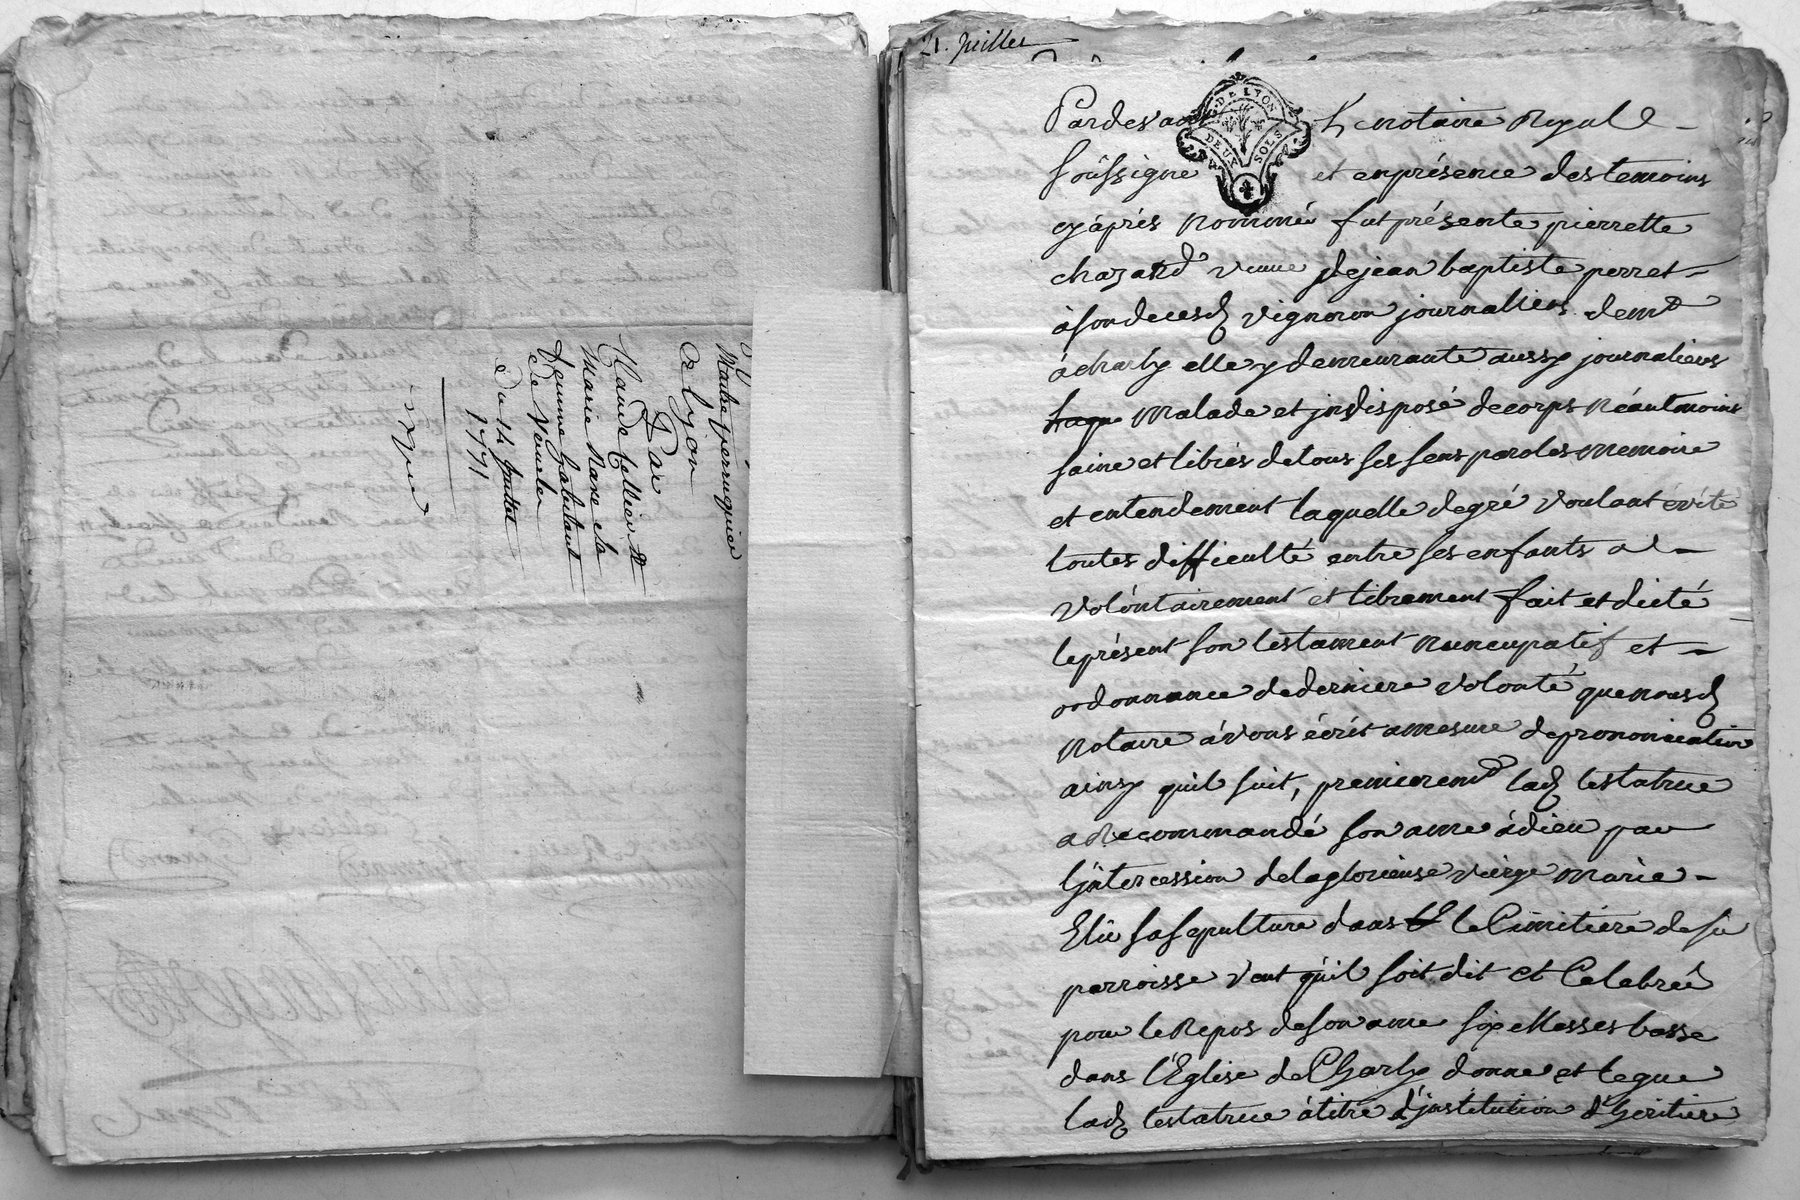 Maitre perruquier
a lyon
Par
Claude Tellier &
Marie Mare sa
femme habitant
de Vourles
Du 14 Juillet
1771
21. Juillet
G. DE LYON
DEUX SOLS
Pardevant le notaire Royal
soussigné et en présence des temoins
cy après nommés fut présente pierrette
chazard veuve de jean baptiste perret
à son deces d vignoron journallier demt
à charly elle y demeurante aussy journaliere
laque malade et jndisposé de corps néantmoins
saine et libres de tous ses sens paroles memoire
et entendement laquelle de gré voulant évité
toutes difficulté entre ses enfants a
volontairement et librement fait et dicté
le présent son testament nuncupatif et
ordonnance de derniere volonté que nous d
notaire avons écrit a mesure de prononciation
ainsy quil suit, premieremt lad testatrice
a Recommandé son ame à dieu par
l'jntercession de la glorieuse vierge marie
Elu sa sepulture dans le Cimitiére de sa
parroisse veut qu'il soit dit et Celebrée
pour le Repos de son ame six Messes basse
dans l'Eglise de Charly donne et legue
lad testatrice à titre d'jnstitution d'heritiere